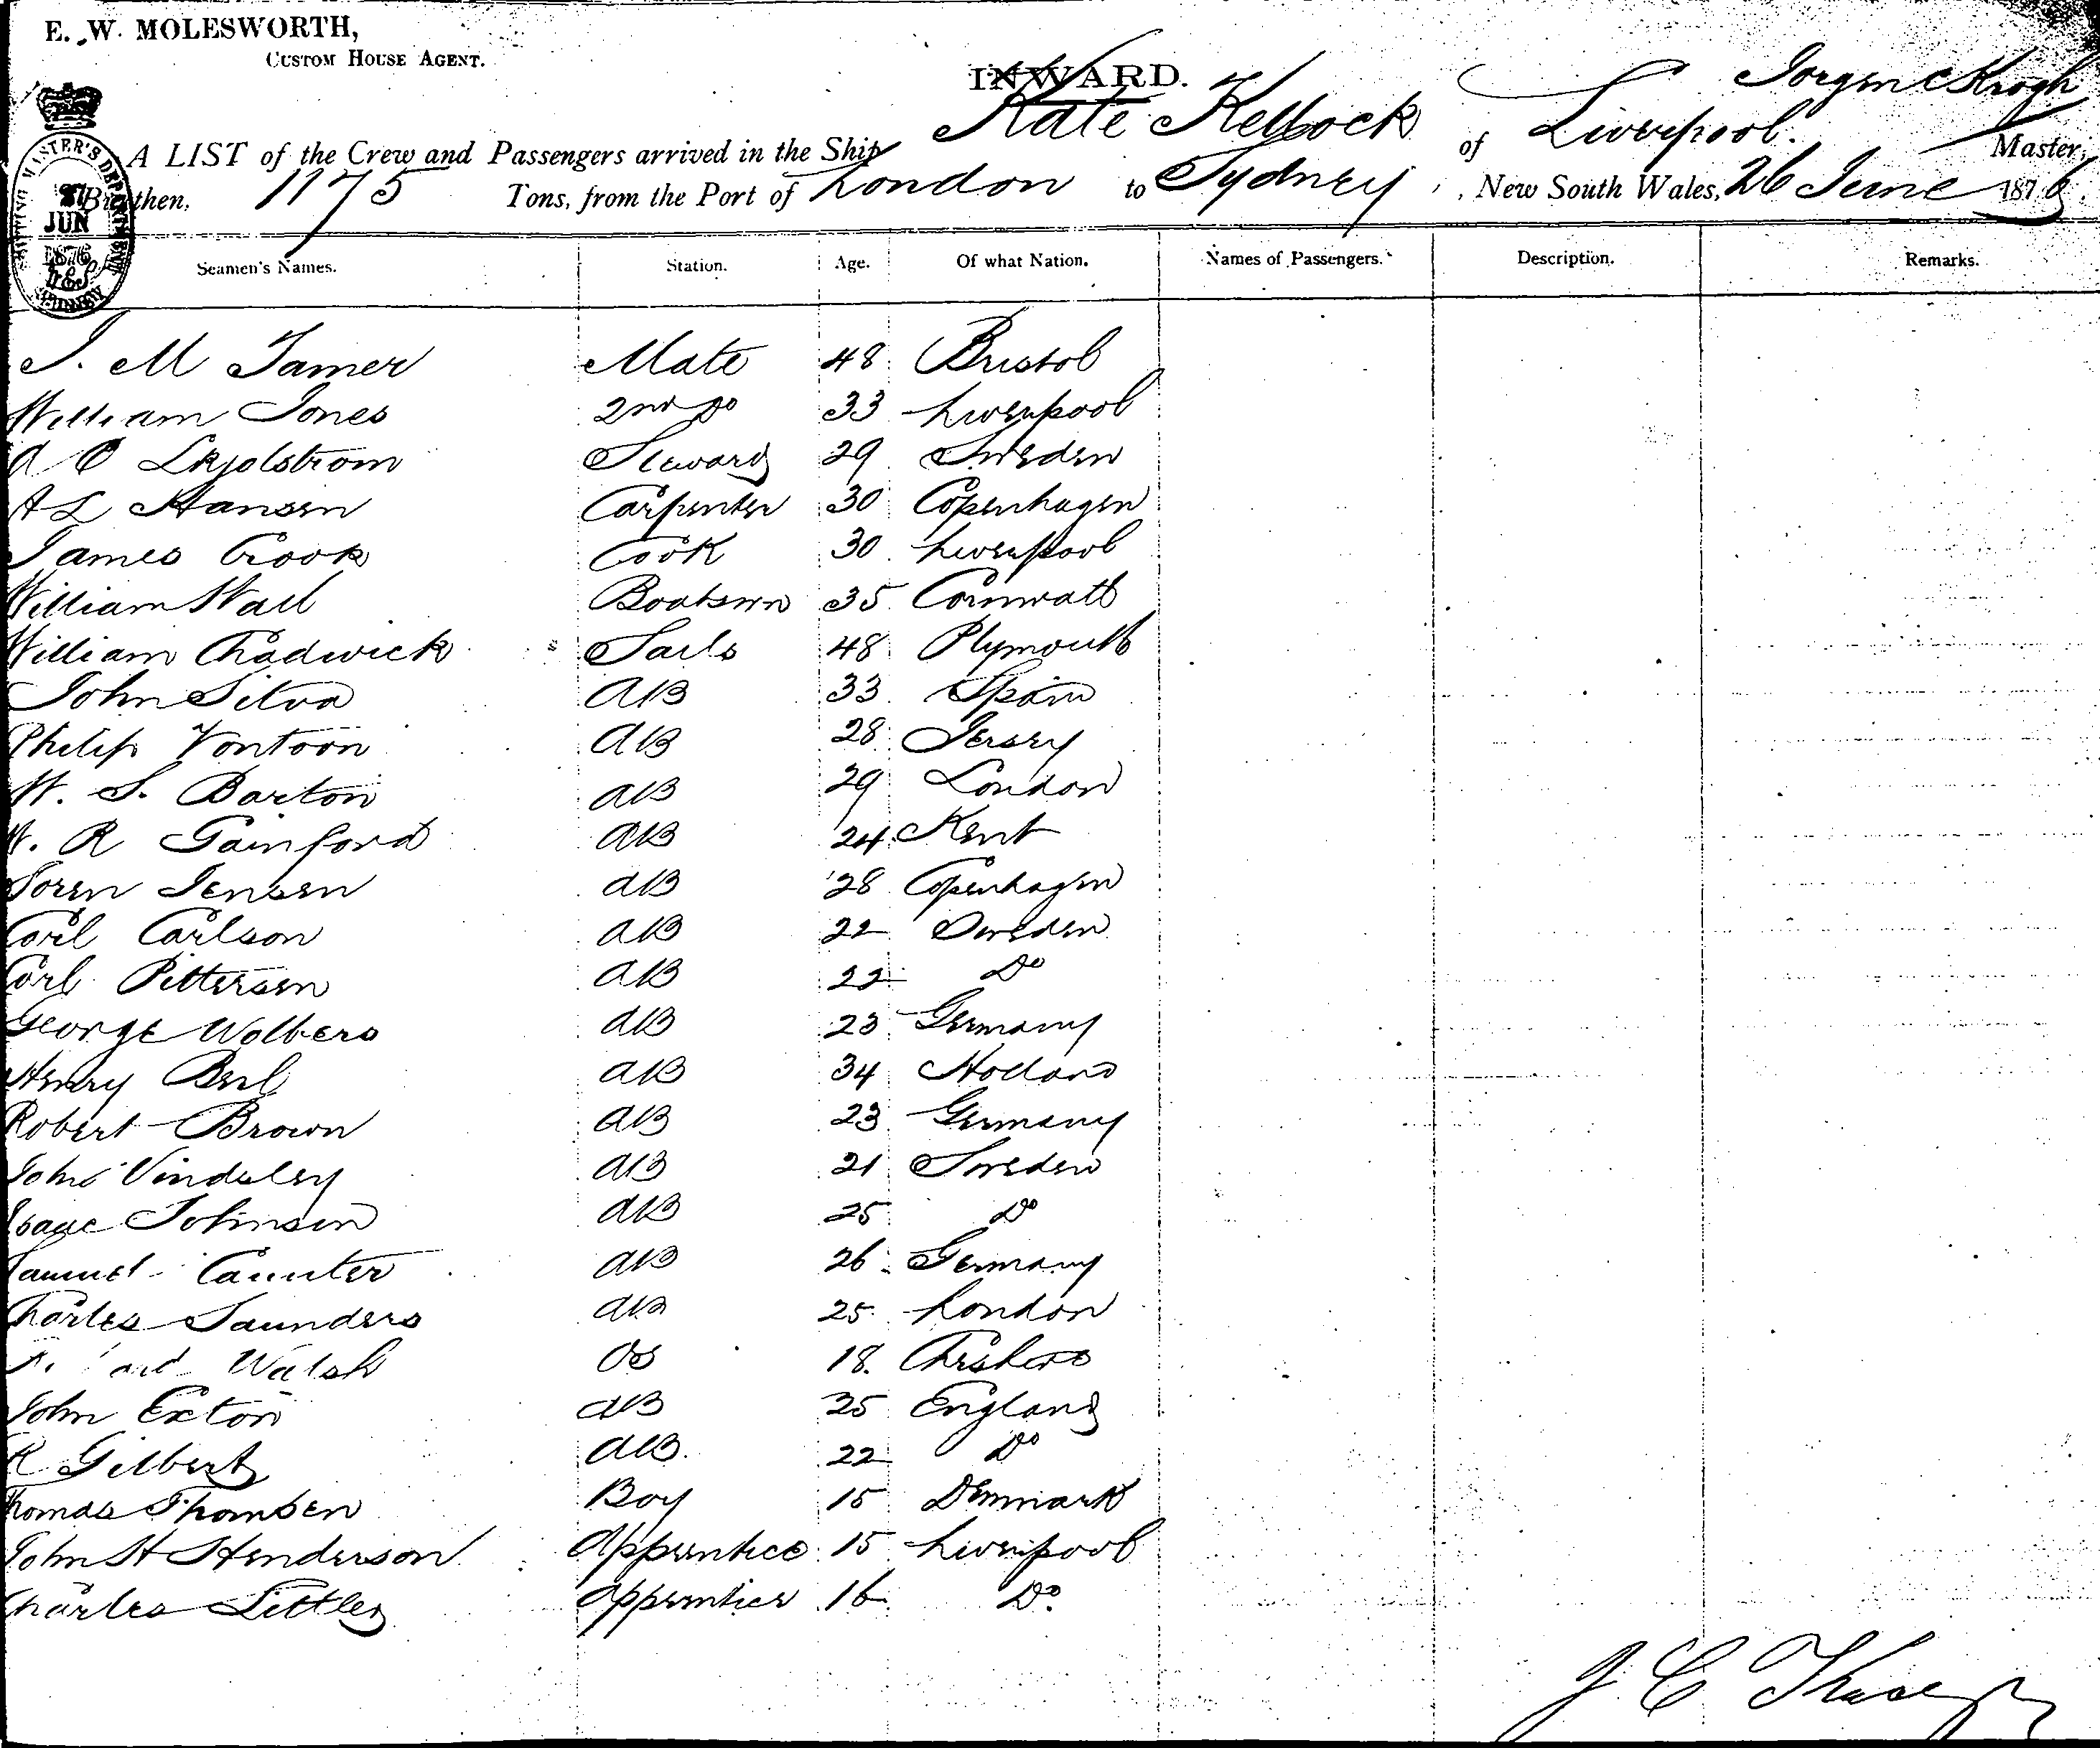 E. W. MOLESWORTH,
CUSTOM HOUSE AGENT.
INWARD.
A LIST of the Crew and Passengers arrived in the Ship Kate Kellock of Liverpool. Jorgen C Krogh Master,
Burthen, 1175 Tons, from the Port of London to Sydney, New South Wales, 26 June 1876
JUN
1876
SYDNEY
Seamen's Names. Station. Age. Of what Nation. Names of Passengers. Description. Remarks.
J. M Tamer Mate 48 Bristol
William Jones 2nd Do 33 Liverpool
A O Steward 29 Sweden
A L Hansen Carpenter 30 Copenhagen
James Crook Cook 30 Liverpool
William Wall Boatswn 35 Cornwall
William Chadwick Sails 48 Plymouth
John Silva AB 33 Spain
Philip Vontoon AB 28 Jersey
W. S. Barton AB 29 London
W. R Gainford AB 24 Kent
Soren Jensen AB 28 Copenhagen
Carl Carlson AB 22 Sweden
Carl Pettersen AB 22 Do
George Wolbers AB 23 Germany
Henry AB 34 Holland
Robert Brown AB 23 Germany
John Vindsley AB 21 Sweden
Isaac Johnsen AB 25 Do
Samuel Caunter AB 26 Germany
Charles Saunders AB 25 London
Walsh OS 18. Cheshire
John Exton AB 25 England
R Gilbert AB. 22 Do
Thomas Thomsen Boy 15 Denmark
John H Henderson Apprentice 15 Liverpool
Charles Littley Apprentice 16 Do.
J C